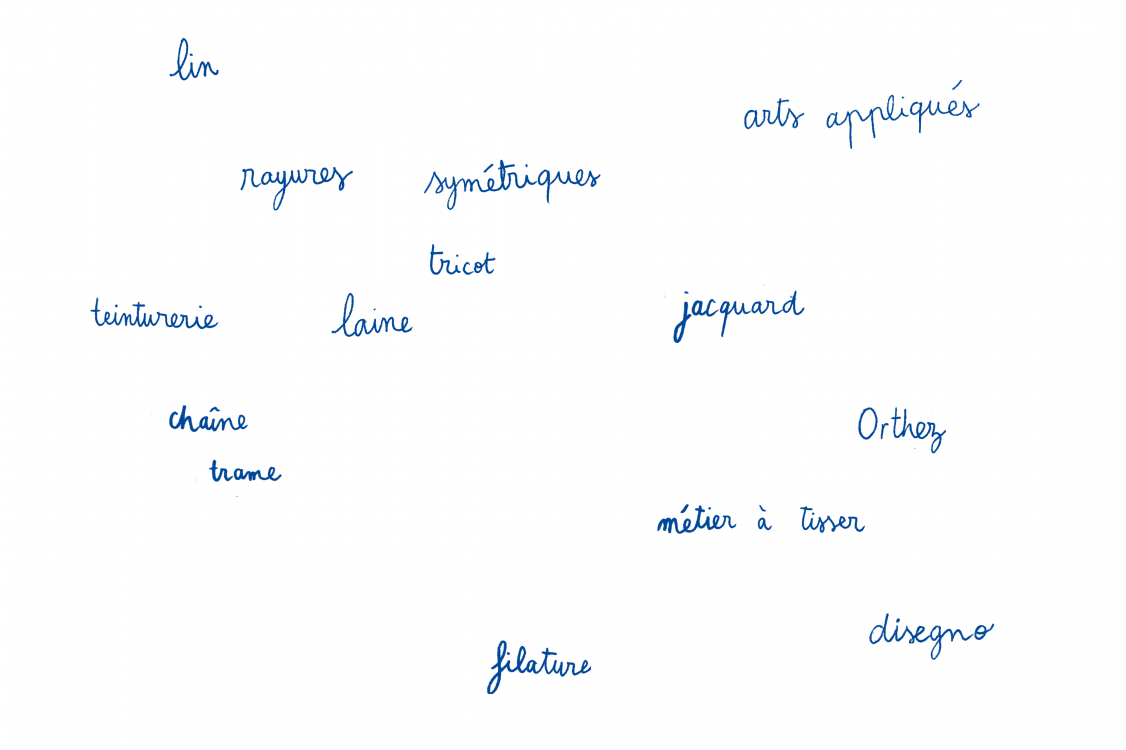 lin
arts appliqués
rayures symétriques
tricot
teinturerie laine jacquard
chaîne Orthez
trame
métier à tisser
disegno
filature